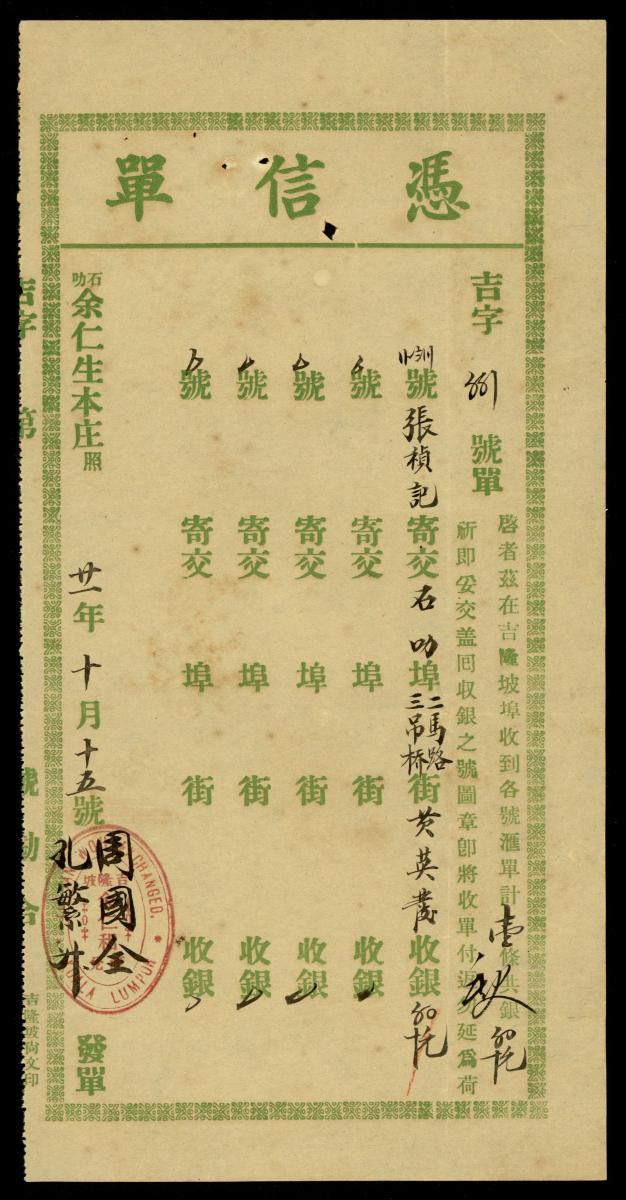 憑信單
吉字 號單
啓者茲在吉隆坡埠收到各號滙單計壹條共銀
祈即妥交盖囘收銀之號圖章卽將收單付返 延爲荷
號張楨記寄交石叻埠二馬路三吊桥街黄英 收銀
號 寄交 埠 街 收銀
號 寄交 埠 街 收銀
號 寄交 埠 街 收銀
號 寄交 埠 街 收銀
石叻余仁生本庄照
廿一年十月十五號 發單
周國全
孔繁
CHANGED.
吉隆坡
LUMPUR
吉字 第 號 勘合
吉隆坡尚文印